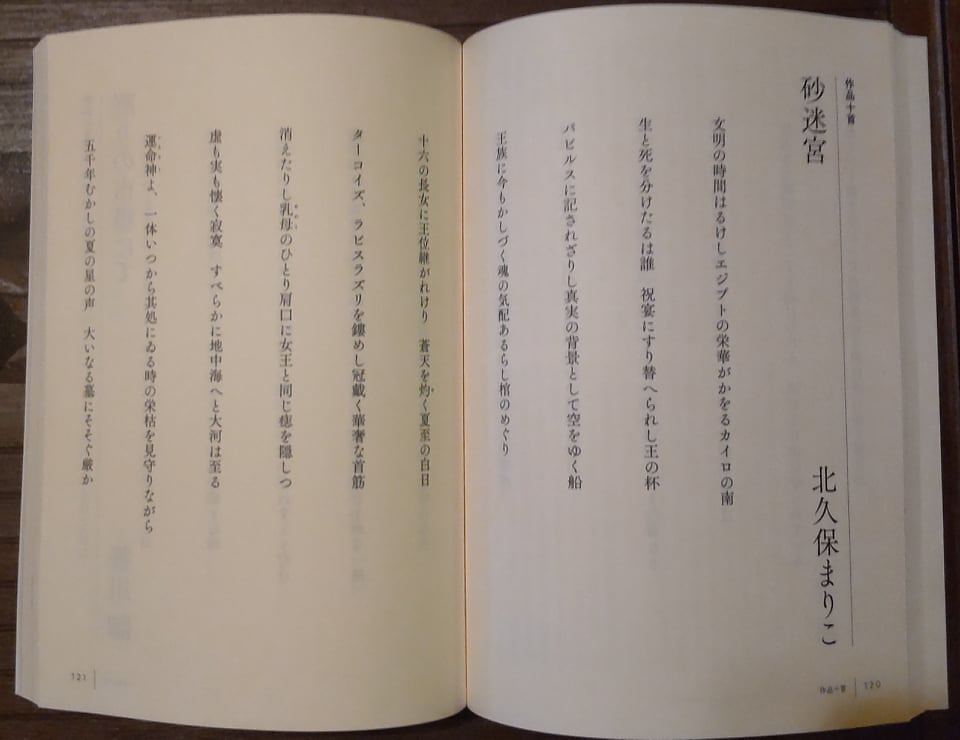 作品十首
砂迷宮
北久保まりこ
文明の時間はるけしエジプトの栄華がかをるカイロの南
生と死を分けたるは誰　祝宴にすり替へられし王の杯
パピルスに記されざりし真実の背景として空をゆく船
王族に今もかしづく魂の気配あるらし棺のめぐり
作品十首
120
十六の長女に王位継がれけり　蒼天を灼く夏至の白日
ターコイズ、ラピスラズリを鏤めし冠戴く華奢な首筋
消えたりし乳母のひとり肩口に女王と同じ痣を隠しつ
虚も実も懐く寂寞　すべらかに地中海へと大河は至る
運命神よ、一体いつから其処にゐる時の栄枯を見守りながら
五千年むかしの夏の星の声　大いなる墓にそそぐ厳か
121